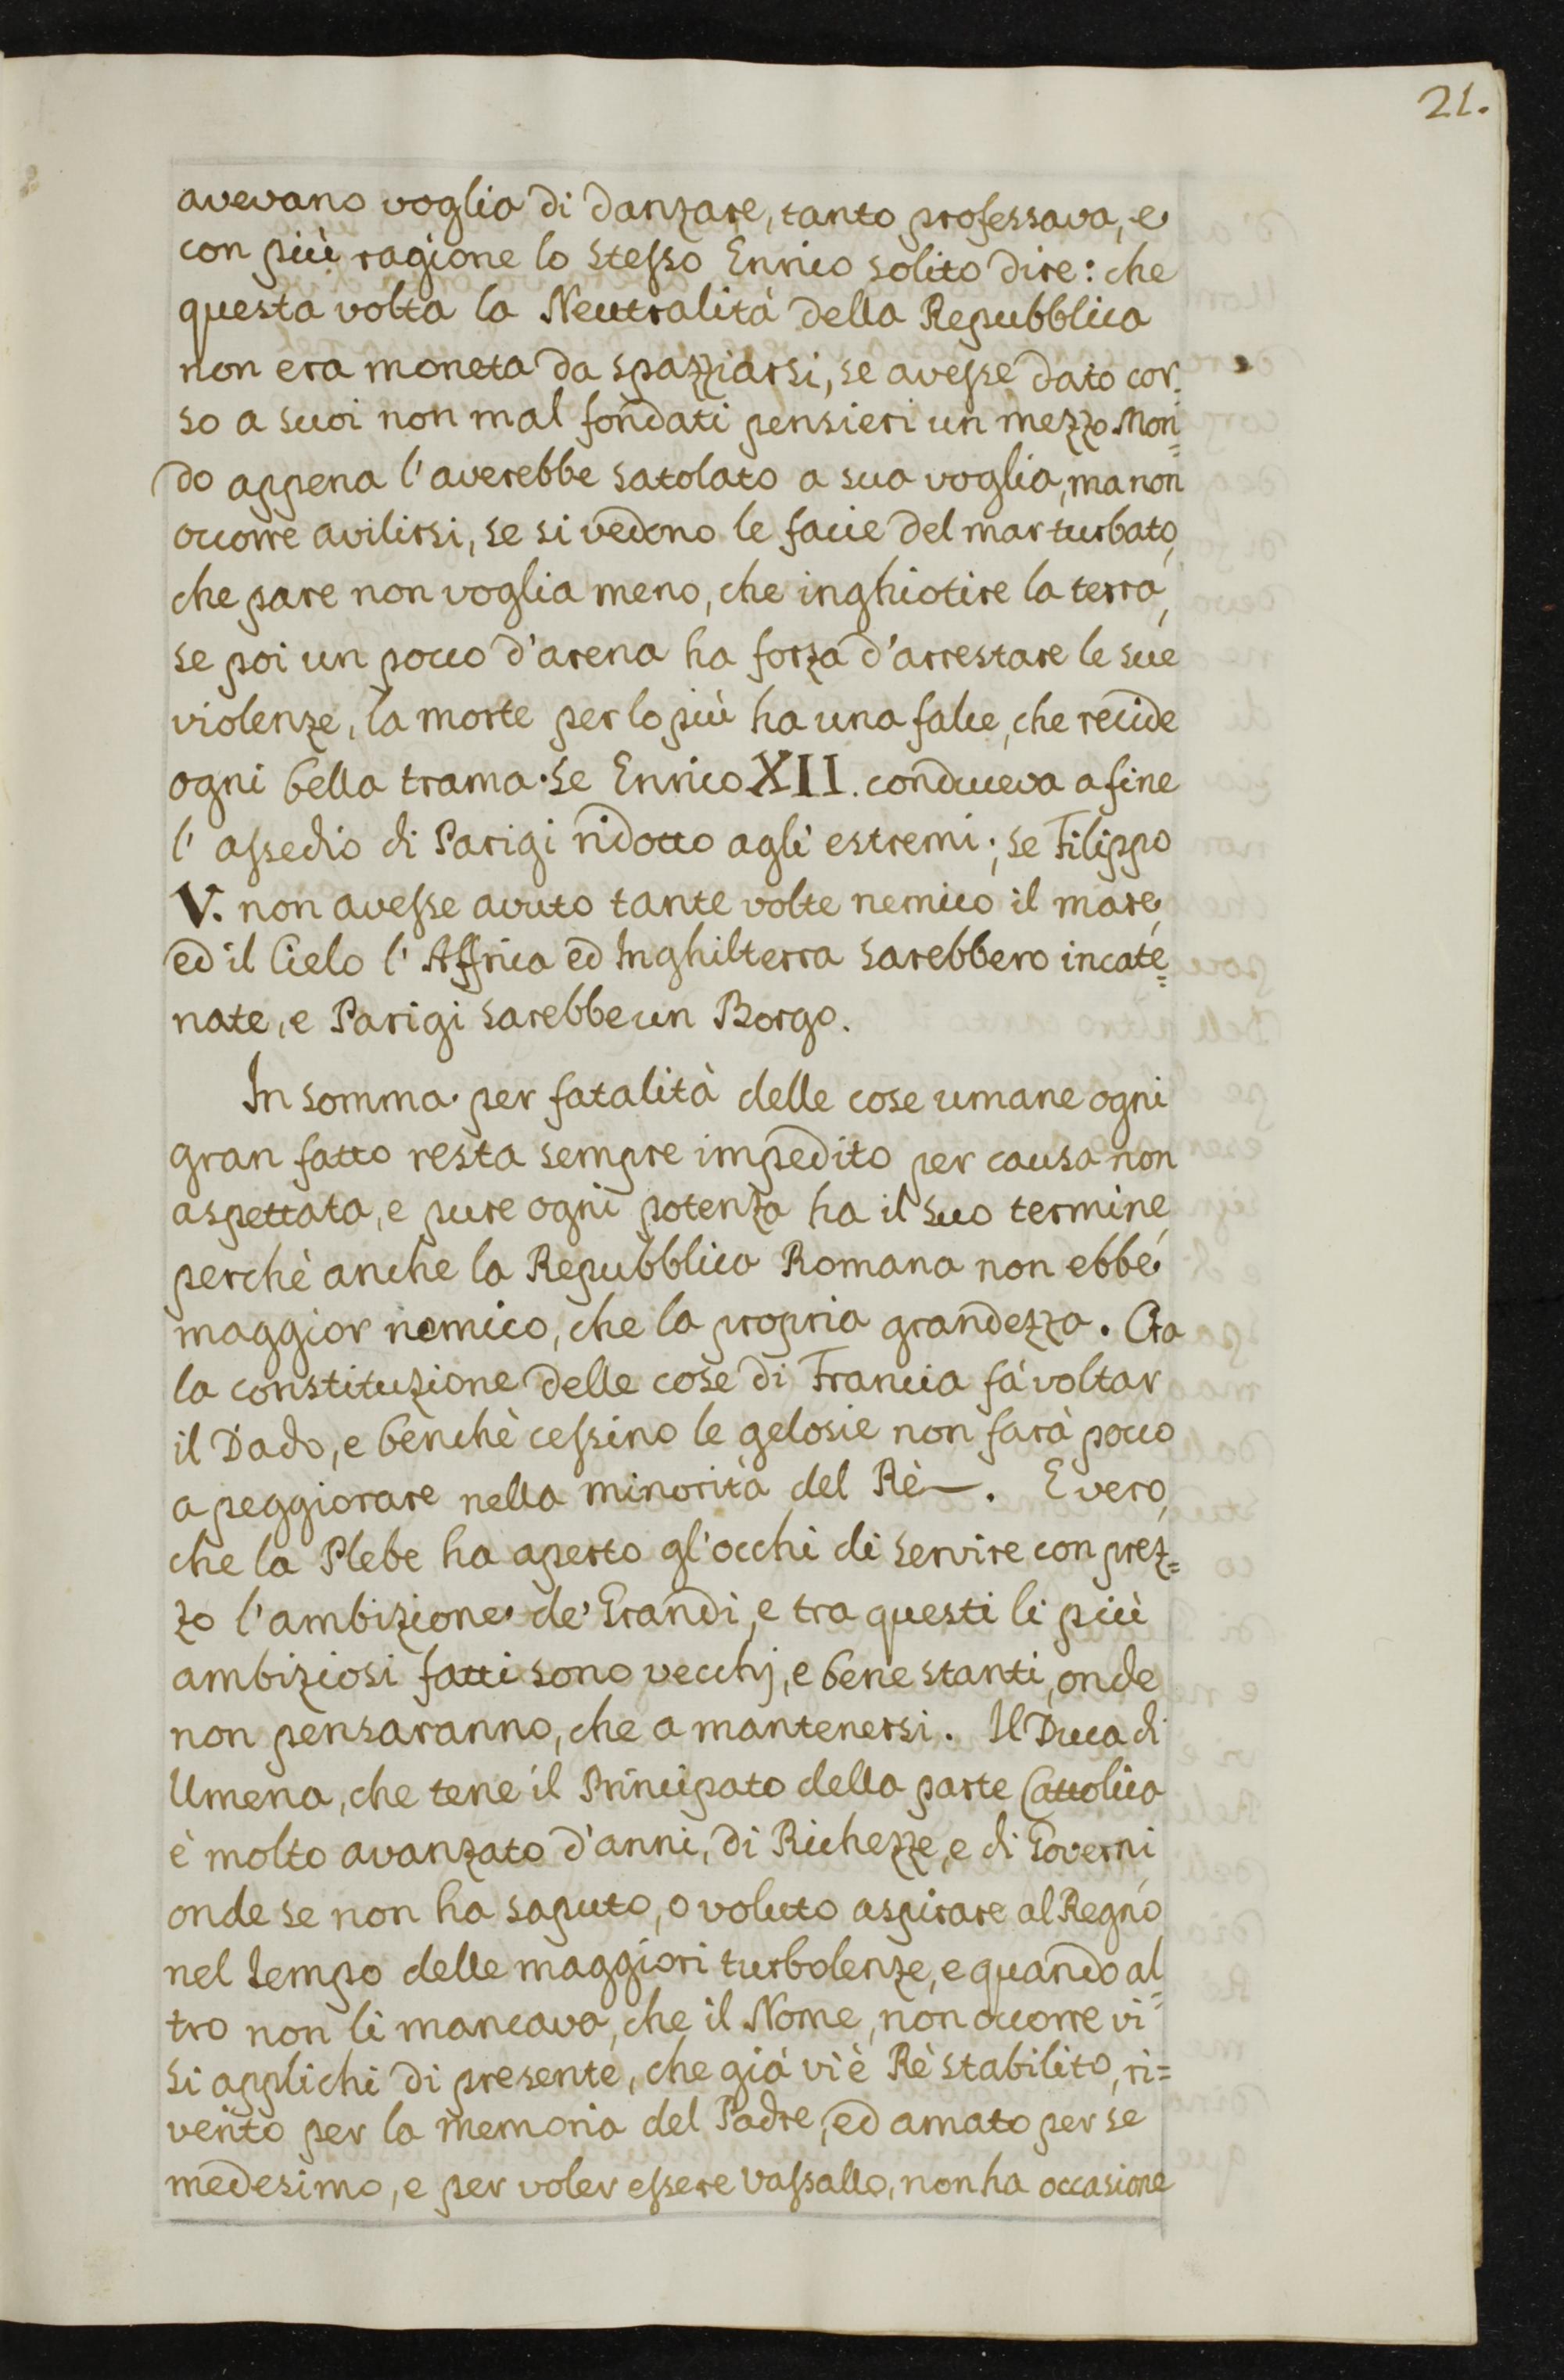 21.
avevano voglia di danzare, tanto professava, e
con più ragione lo stesso Enrico solito dire: che
questa volta la Neutralità della Repubblica
non era moneta da spazziarsi, se avesse dato cor=
so a suoi non mal fondati pensieri un mezzo Mon=
do appena l'averebbe satolato a sua voglia, ma non
occorre avilirsi, se si vedono le facie del mar turbato,
che pare non voglia meno, che inghiotire la terra,
se poi un poco d'arena ha forza d'arrestare le sue
violenze, la morte per lo più ha una falce, che recide
ogni bella trama. Se Enrico XII. conduceva a fine
l'assedio di Parigi ridotto agli estremi; se Filippo
V. non avesse avuto tante volte nemico il mare,
ed il Cielo l'Affrica ed Inghilterra sarebbero incate=
nate, e Parigi sarebbe un Borgo.
In somma per fatalità delle cose umane ogni
gran fatto resta sempre impedito per causa non
aspettata, e pure ogni potenza ha il suo termine,
perchè anche la Repubblica Romana non ebbe
maggior nemico, che la propria grandezza. Ora
la constituzione delle cose di Francia fà voltar
il Dado, e benchè cessino le gelosie non farà poco
a peggiorare nella minorità del Rè—. E vero,
che la Plebe ha aperto gl'occhi di servire con prez=
zo l'ambizione de' Grandi, e tra questi li più
ambiziosi fatti sono vecchj, e bene stanti, onde
non pensaranno, che a mantenersi. Il Duca di
Umena, che tene il Principato della parte Cattolica
è molto avanzato d'anni, di Richezze, e di Governi,
onde se non ha saputo, o voluto aspirare al Regno
nel tempo delle maggiori turbolenze, e quando al=
tro non li mancava, che il Nome, non occorre vi
si applichi di presente, che già vi è Rè stabilito, ri=
verito per la memoria del Padre, ed amato per se
medesimo, e per voler essere vassallo, non ha occasione